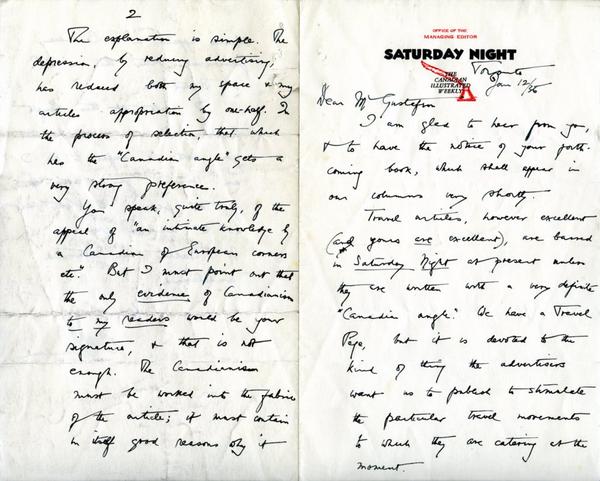 OFFICE OF THE
MANAGING EDITOR
SATURDAY NIGHT
THE
CANADIAN
ILLUSTRATED
WEEKLY
Toronto
Jan 12/36
Dear Mr Gustafson
I am glad to hear from you,
& to have the notice of your forth-
coming book, which shall appear in
our columns very shortly.
Travel articles, however excellent
(and yours are excellent), are barred
in Saturday Night at present unless
they are written with a very definite
"Canadian angle". We have a Travel
Page, but it is devoted to the
kind of thing the advertisers
want us to publish to stimulate
the particular travel movements
to which they are catering at the
moment.
2
The explanation is simple. The
depression, by reducing advertising,
has reduced both my space & my
articles appropriation by one-half. In
the process of selection, that which
has the "Canadian angle" gets a
very strong preference.
You speak, quite truly, of the
appeal of "an intimate knowledge by
a Canadian of European corners
etc". But I must point out that
the only evidence of Canadianism
to my readers would be your
signature, & that is not
enough. The Canadianism
must be worked into the fabric
of the article; it must contain
in itself good reasons why it